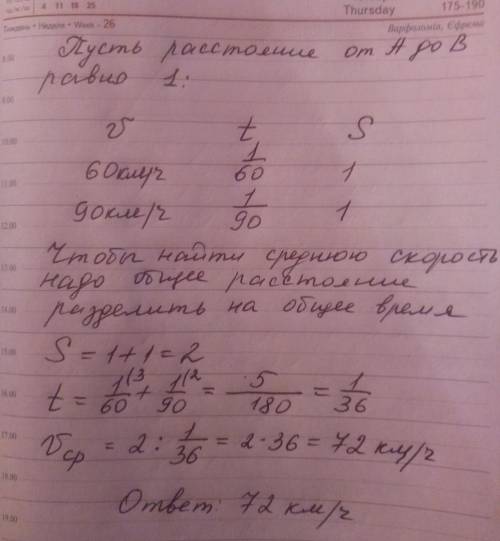 4 11 18 25
Thursday 175-190
Тиждень • Неделя • Week - 26
Варфоломія, Єфрема
Пусть расстояние от А до В
равно 1:
v t S
60км/ч 1/60 1
90км/ч 1/90 1
Чтобы найти среднюю скорость
надо общее расстояние
разделить на общее время
S = 1 + 1 = 2
t = 1/60 (3 + 1/90 (2 = 5/180 = 1/36
vср = 2 : 1/36 = 2·36 = 72 км/ч
Ответ: 72 км/ч
8.00
9.00
10.00
11.00
12.00
13.00
14.00
15.00
16.00
17.00
18.00
19.00